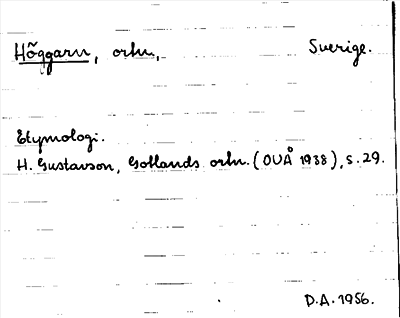 Höggarn, ortn., Sverige.
Etymologi.
H. Gustavson, Gotlands ortn. (OUÅ 1938), s. 29.
D.A. 1956.